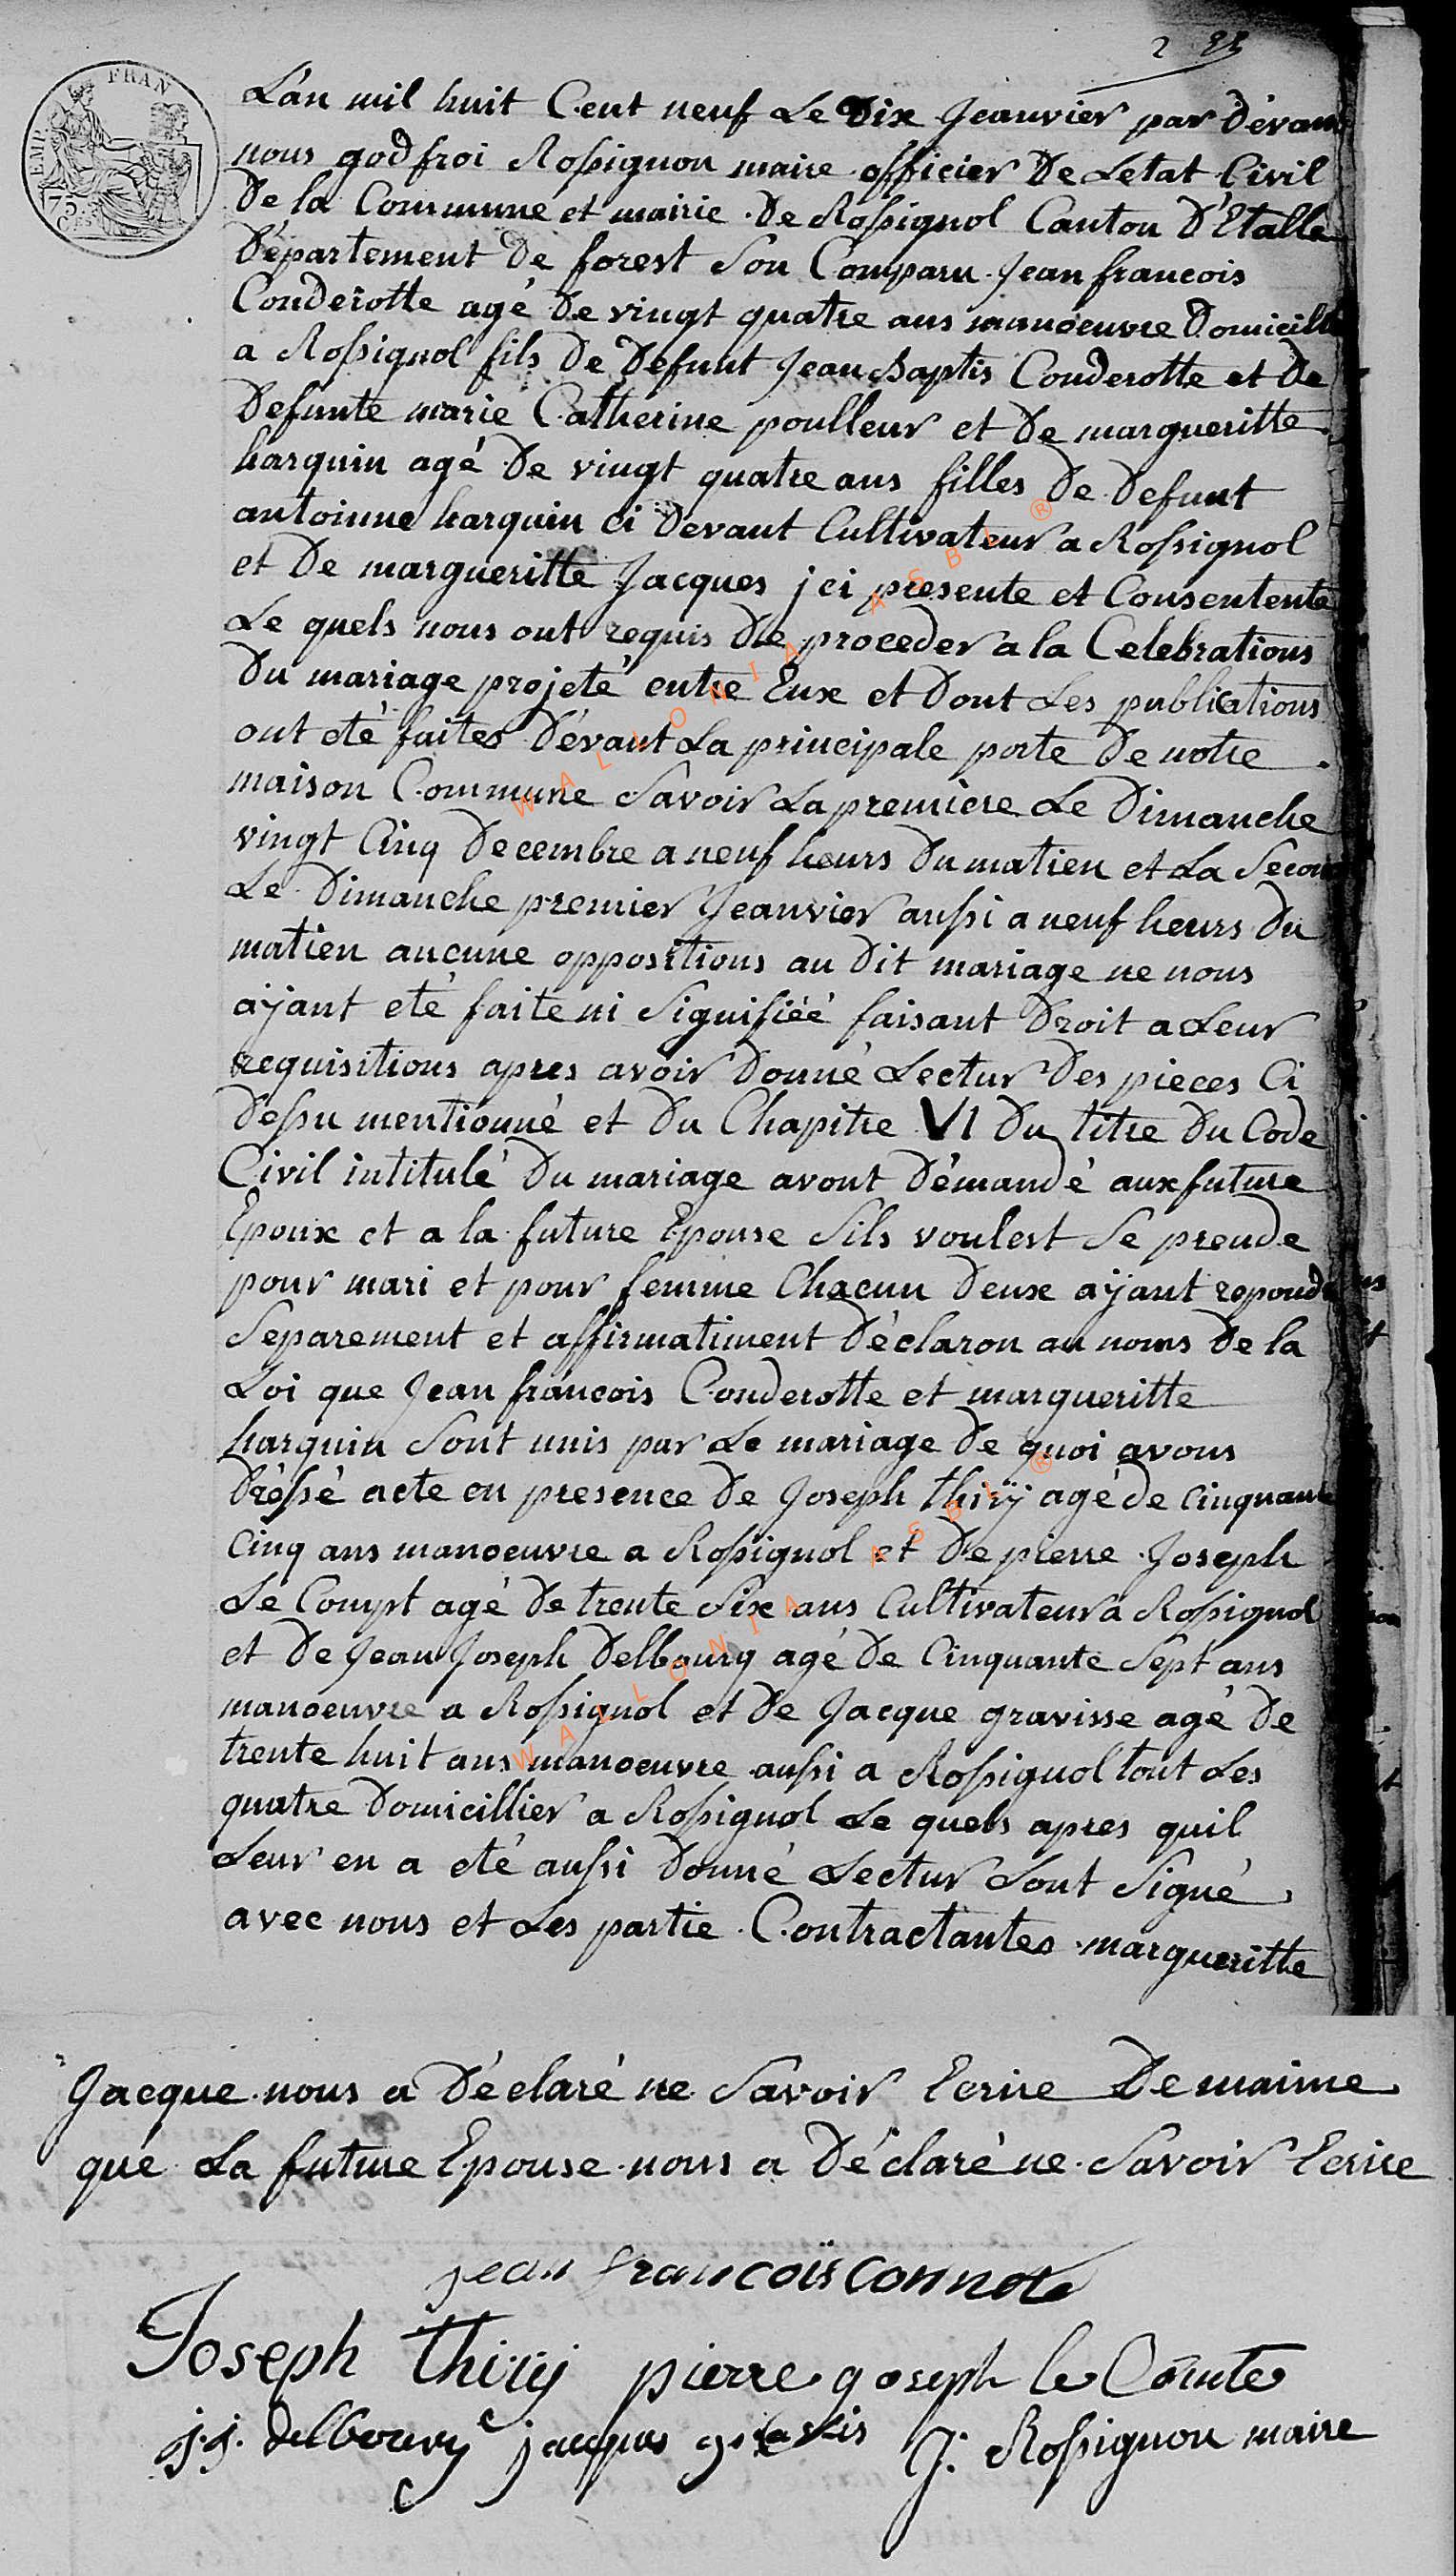 L'an mil huit Cent neuf Le Dix Jeanvier par dévant
nous godfroi Rossignon maire officier De Letat Civil
De la Commune et mairie De Rossignol Canton D'Etalle
Département De forest Son Comparu Jean francois
Conderotte agé De vingt quatre ans manoeuvre Domicillié
a Rossignol fils De Defunt Jean Baptis Conderotte et De
Defunte marie Catherine poulleur et De margueritte
harquin agé De vingt quatre ans filles De Defunt
antoinne harquin ci Devant Cultivateur a Rossignol
et De margueritte Jacques jci presente et Consentente
Le quels nous ont requis De proceder a la Celebrations
Du mariage projeté entre Eux et Dont Les publications
ont eté faites Dévant La principale porte De notre
maison Commune Savoir La premiere Le Dimanche
vingt Cinq Decembre a neuf heurs Du matien et La Second
Le Dimanche premier Jeanvier aussi a neuf heurs Du
matien aucune oppositions au Dit mariage ne nous
aÿant eté faite ni Signifiéé faisant Droit a Leur
requisitions apres avoir Donné Lectur Des pieces Ci
Dessu mentionné et Du Chapitre VI Du titre Du Code
Civil intitulé Du mariage avont Démandé aux future
Epoux et a la future Epouse Sils voulest Se prende
pour mari et pour femme Chacun Deux aÿant repondu
Separement et affirmatiment Déclaron au noms De la
Loi que Jean francois Conderotte et margueritte
harquin Sont unis par Le mariage De quoi avons
Dréssé acte en presence De Joseph thirÿ agé de cinquante
Cinq ans manoeuvre a Rossignol et De pierre Joseph
Le Compt agé De trente Six ans Cultivateur a Rossignol
et De Jean Joseph Delbourg agé De Cinquante Sept ans
manoeuvre a Rossignol et De Jacque gravisse agé De
trente huit ans manoeuvre aussi a Rossignol tout Les
quatre Domicillier a Rossignol Le quels apres quil
Leur en a eté aussi Donné Lectur Lont Signé
avec nous et Les partie Contractantes margueritte
Jacque nous a Déclaré ne Savoir Ecrire De maime
que La future Epouse nous a Déclaré ne Savoir Ecrire
jean francois connote
Joseph thirÿ pierre joseph le Comte
j.j. delbourg jacques gravis G: Rossignon maire
FRAN
EMP.
75 CES
WALLONIA ASBL ®
WALLONIA ASBL ®